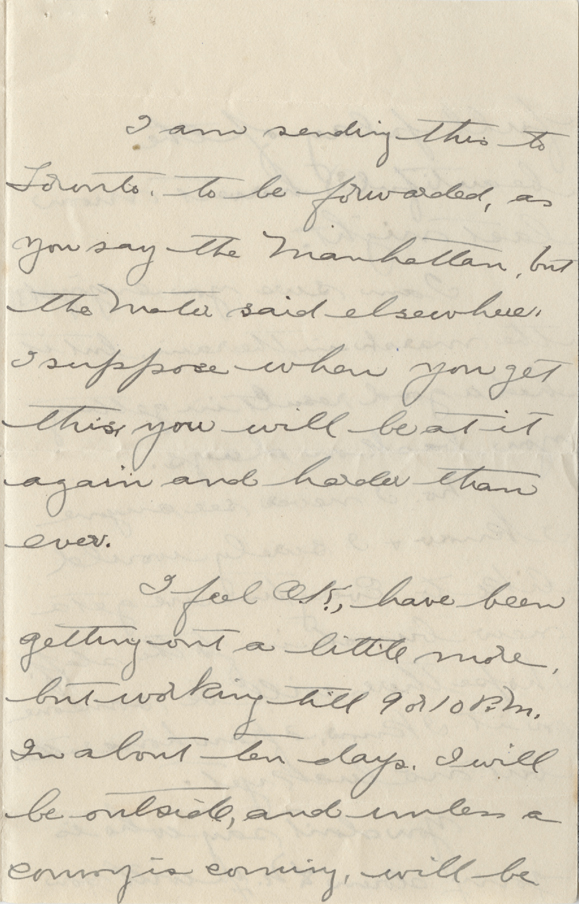 I am sending this to
Toronto. to be forwarded, as
you say the Manhattan, but
the Mater said elsewhere.
I suppose when you get
this, you will be at it
again and harder than
ever.
I feel O.K., have been
getting out a little more,
but working till 9 or 10 P.M.
In about ten days. I will
be outside, and unless a
convoy is coming, will be